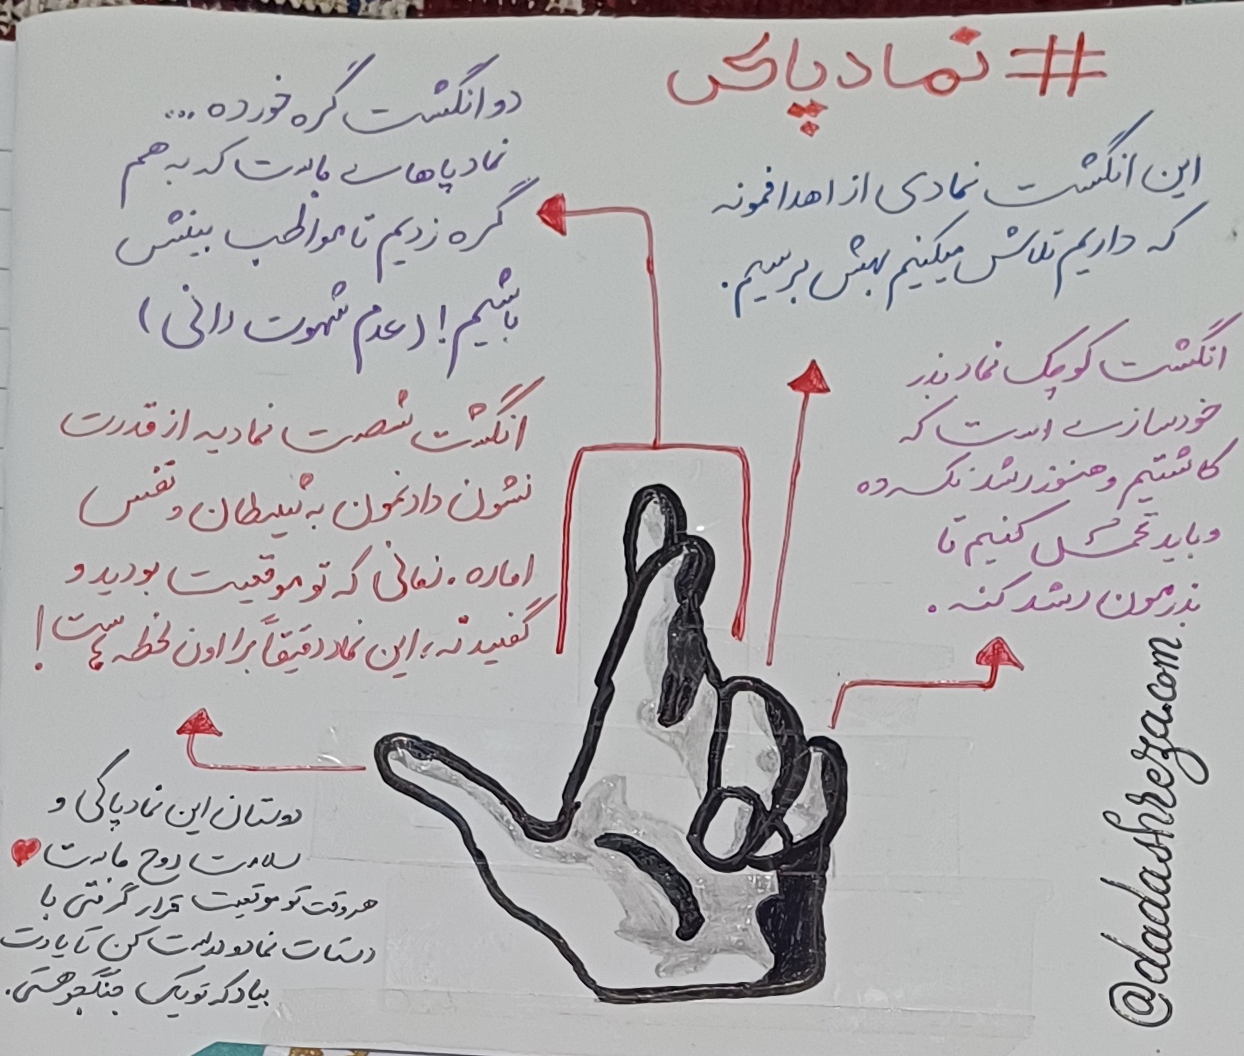 #نماد پاکی
این انگشت نمادی از اهدافمونه
که داریم تلاش میکنیم بهش برسیم.
دو انگشت گره خورده...
نماد پاهای ماست که به هم
گره زدیم تا مواظب بینش
باشیم! (عدم شهوت رانی)
انگشت کوچک نماد بذر
خودسازی است که
کاشتیم و هنوز رشد نکرده
و باید تحمل کنیم تا
بذرمون رشد کنه.
انگشت شصت نمادیه از قدرت
نشون دادنمون به شیطان و نفس
اماره. زمانی که تو موقعیت بودید و
گفتید نه، این نماد دقیقاً برا اون لحظه هست!
دوستان این نماد پاکی و
سلامت روح ماست
هر وقت تو موقعیت قرار گرفتی با
دستات نمادو درست کن تا یادت
بیاد که تو یک جنگجو هستی.
@dadashreza.com